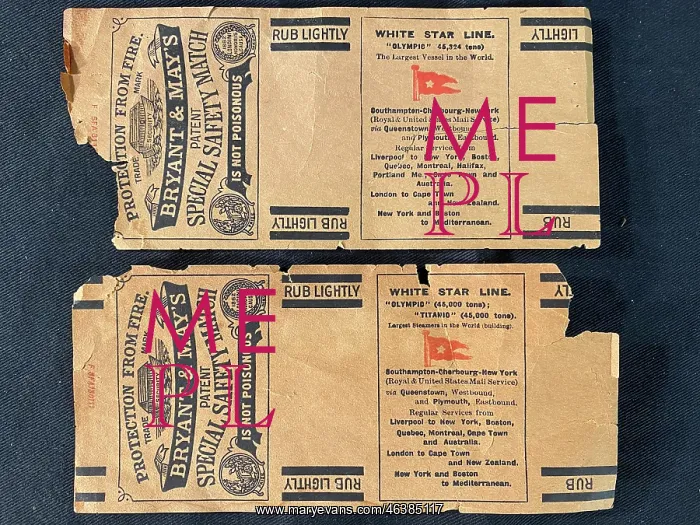 PROTECTION FROM FIRE.
TRADE MARK
SECURITY
BRYANT & MAY'S
PATENT
SPECIAL SAFETY MATCH
IS NOT POISONOUS
RUB LIGHTLY
RUB LIGHTLY
WHITE STAR LINE.
"OLYMPIC" 45,324 tons)
The Largest Vessel in the World.
Southampton-Cherbourg-New York
(Royal & United States Mail Service)
via Queenstown, Westbound,
and Plymouth, Eastbound.
Regular Services from
Liverpool to New York, Boston,
Quebec, Montreal, Halifax,
Portland Me., Cape Town and
Australia.
London to Cape Town
and New Zealand.
New York and Boston
to Mediterranean.
LIGHTLY
RUB
ME
PL
PROTECTION FROM FIRE.
TRADE MARK
SECURITY
BRYANT & MAY'S
PATENT
SPECIAL SAFETY MATCH
IS NOT POISONOUS
RUB LIGHTLY
RUB LIGHTLY
WHITE STAR LINE.
"OLYMPIC" (45,000 tons);
"TITANIC" (45,000 tons).
Largest Steamers in the World (building).
Southampton-Cherbourg-New York
(Royal & United States Mail Service)
via Queenstown, Westbound,
and Plymouth, Eastbound.
Regular Services from
Liverpool to New York, Boston,
Quebec, Montreal, Cape Town
and Australia.
London to Cape Town
and New Zealand.
New York and Boston
to Mediterranean.
LY
RUB
ME
PL
www.maryevans.com/46385117